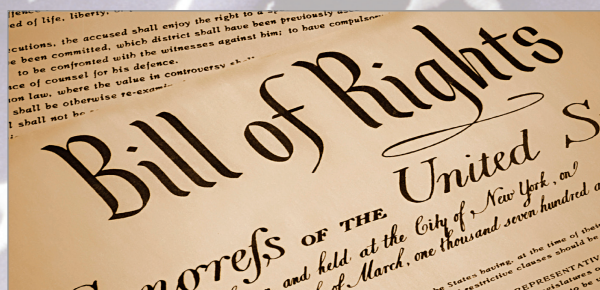 ed of life, liberty,
ecutions, the accused shall enjoy the right to a
e been committed, which district shall have been previously
to be confronted with the witnesses against him; to have compulso
ce of counsel for his defence.
on law, where the value in controversy
shall be otherwise re-exami
l shall not be
Bill of Rights
ongreſs OF THE United S
and held at the City of New York, on
of March, one thousand seven hundred a
he States having, at the time of thei
restrictive clauses should be
REPRESENTATIV